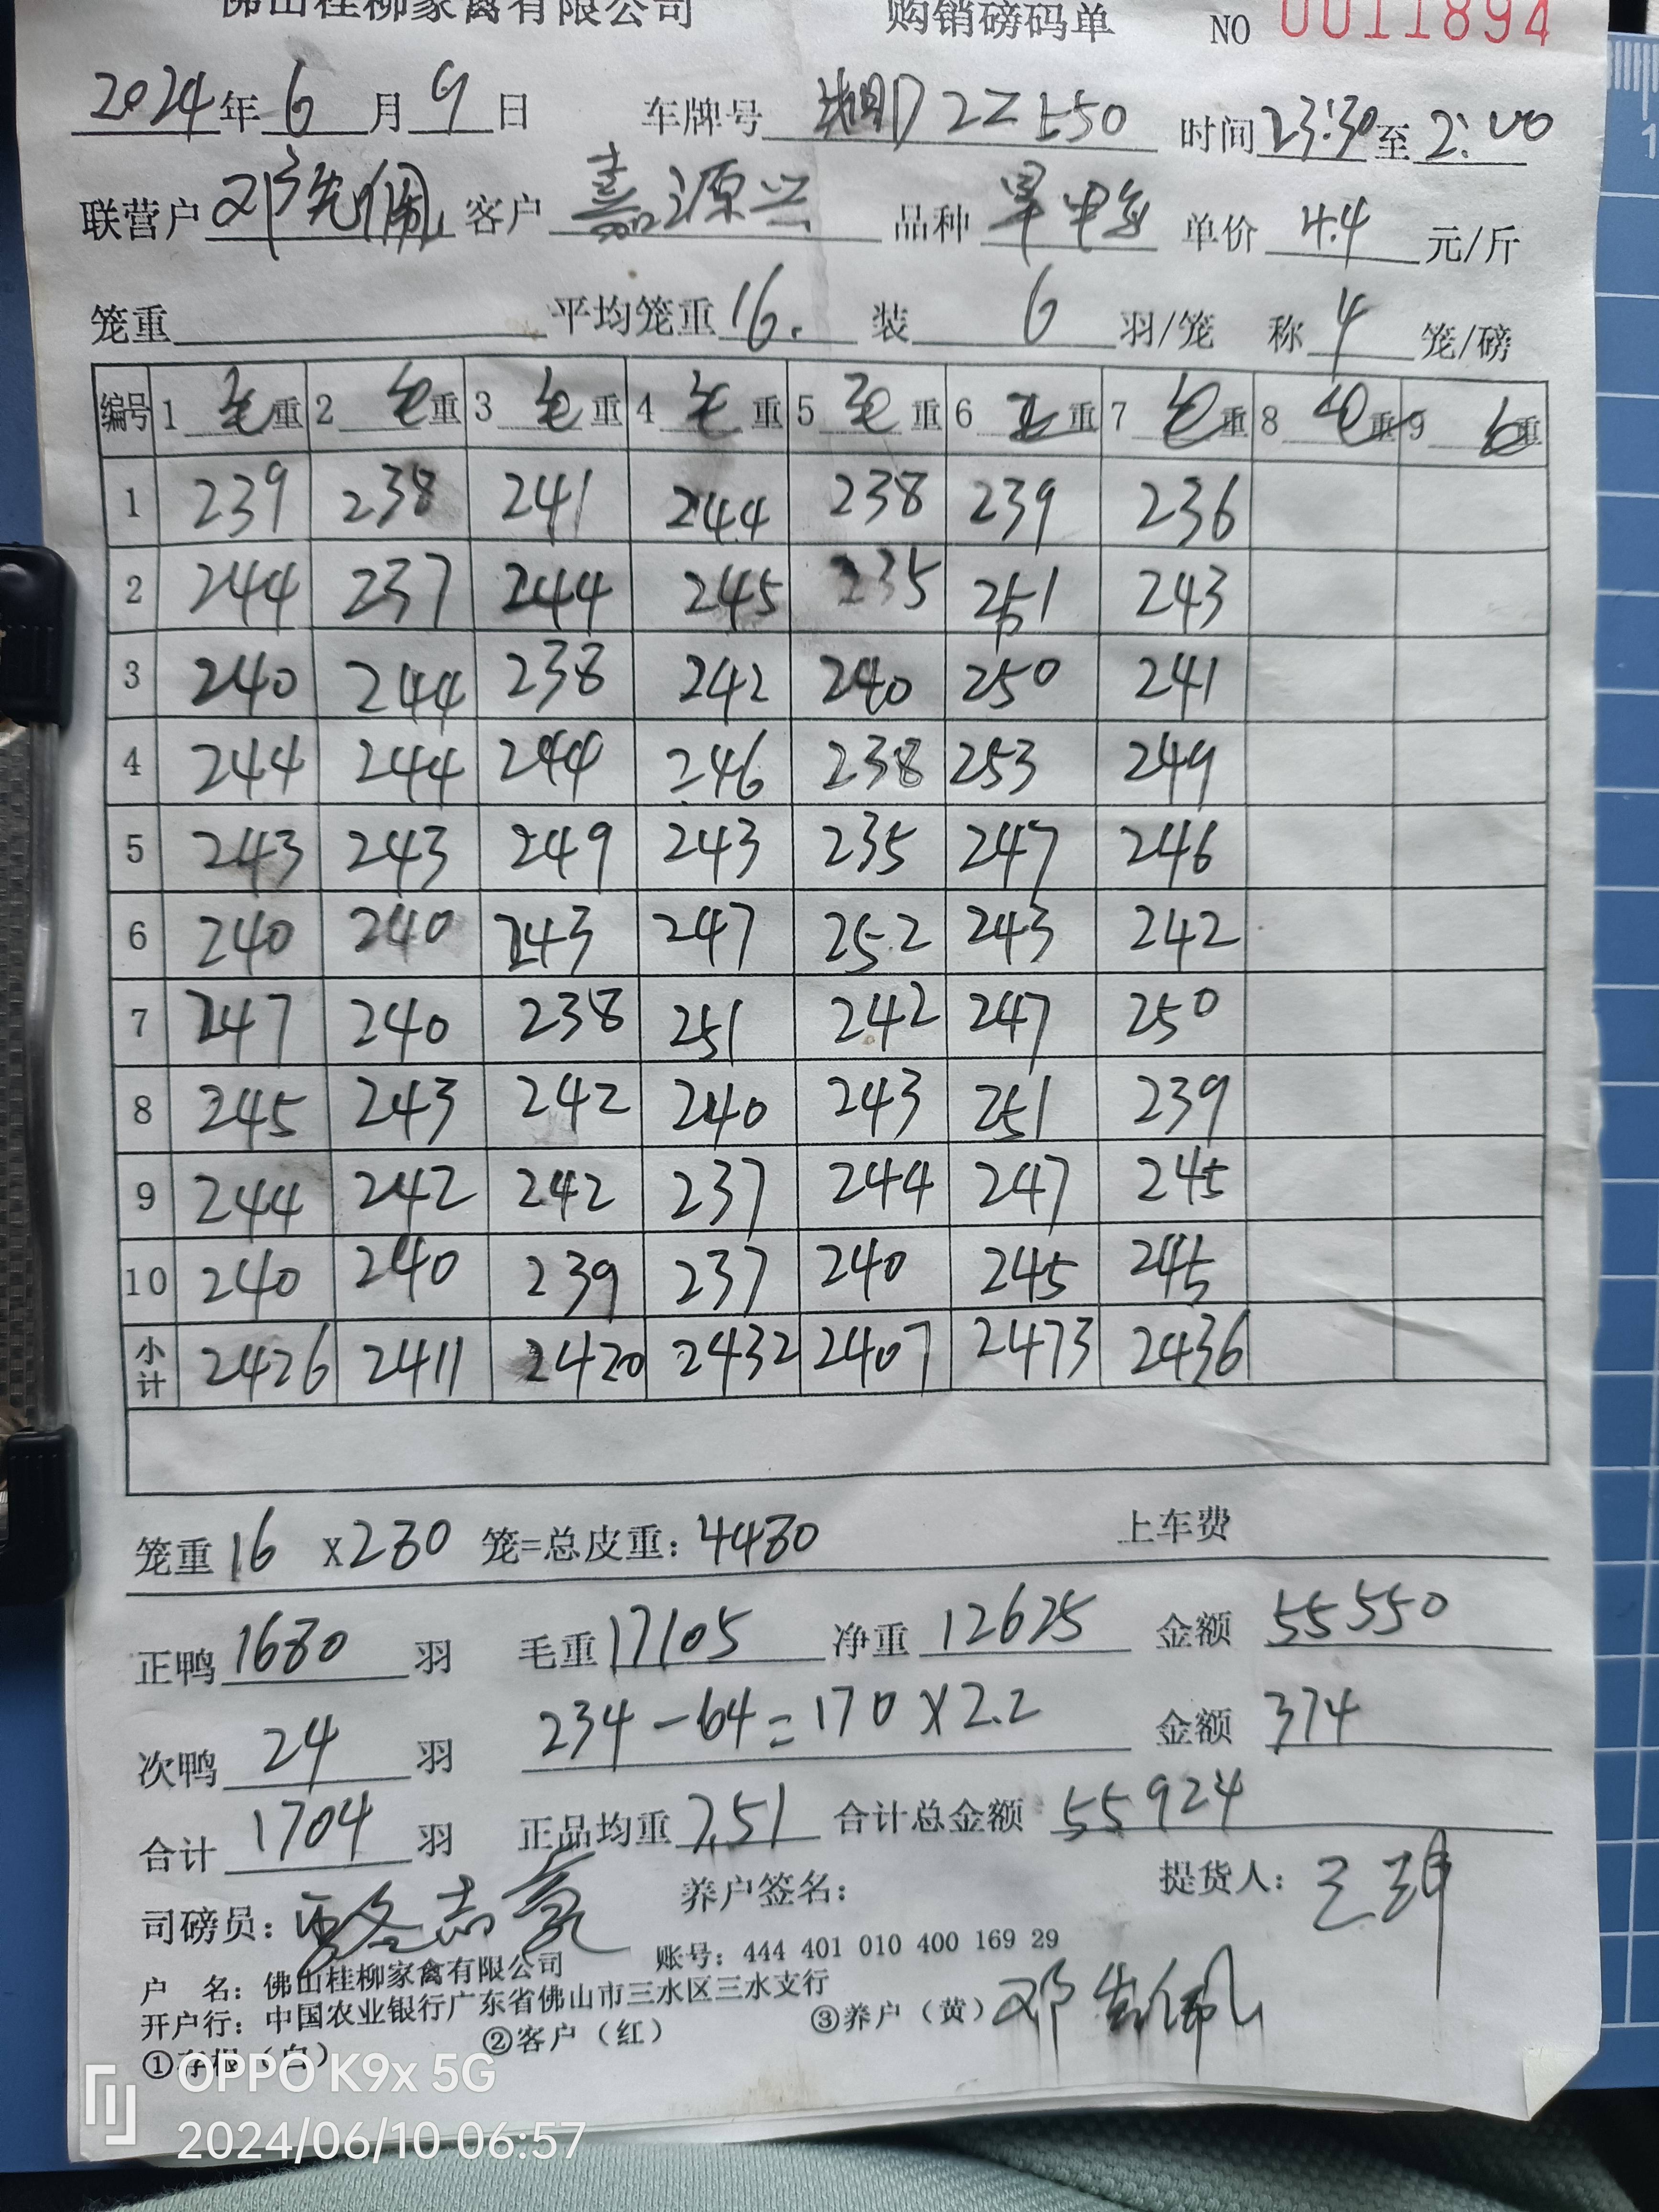 佛山桂柳家禽有限公司 购销磅码单 NO 0011894
2024年6月9日 车牌号 2255550 时间23:30至2:00
联营户 邓先佩 客户 嘉源兴 品种 单价 4.4 元/斤
笼重 平均笼重16. 装 6 羽/笼 称 4 笼/磅
编号 1 毛重 2 毛重 3 毛重 4 毛重 5 毛重 6 毛重 7 毛重 8 毛重 9 毛重
1 239 238 241 244 238 239 236
2 244 237 244 245 235 251 243
3 240 244 238 242 240 250 241
4 244 244 244 246 238 253 249
5 243 243 249 243 235 247 246
6 240 240 243 247 252 243 242
7 247 240 238 251 242 247 250
8 245 243 242 240 243 251 239
9 244 242 242 237 244 247 245
10 240 240 239 237 240 245 245
小计 2426 2411 2420 2432 2407 2473 2436
笼重16 x280 笼=总皮重：4480 上车费
正鸭 1680 羽 毛重 17105 净重 12625 金额 55550
次鸭 24 羽 234-64=170×2.2 金额 374
合计 1704 羽 正品均重 7.51 合计总金额 55924
司磅员： 志 养户签名： 提货人：
户 名：佛山桂柳家禽有限公司 账号：444 401 010 400 169 29
开户行：中国农业银行广东省佛山市三水区三水支行
①存根（白） ②客户（红） ③养户（黄）
OPPO K9x 5G
2024/06/10 06:57